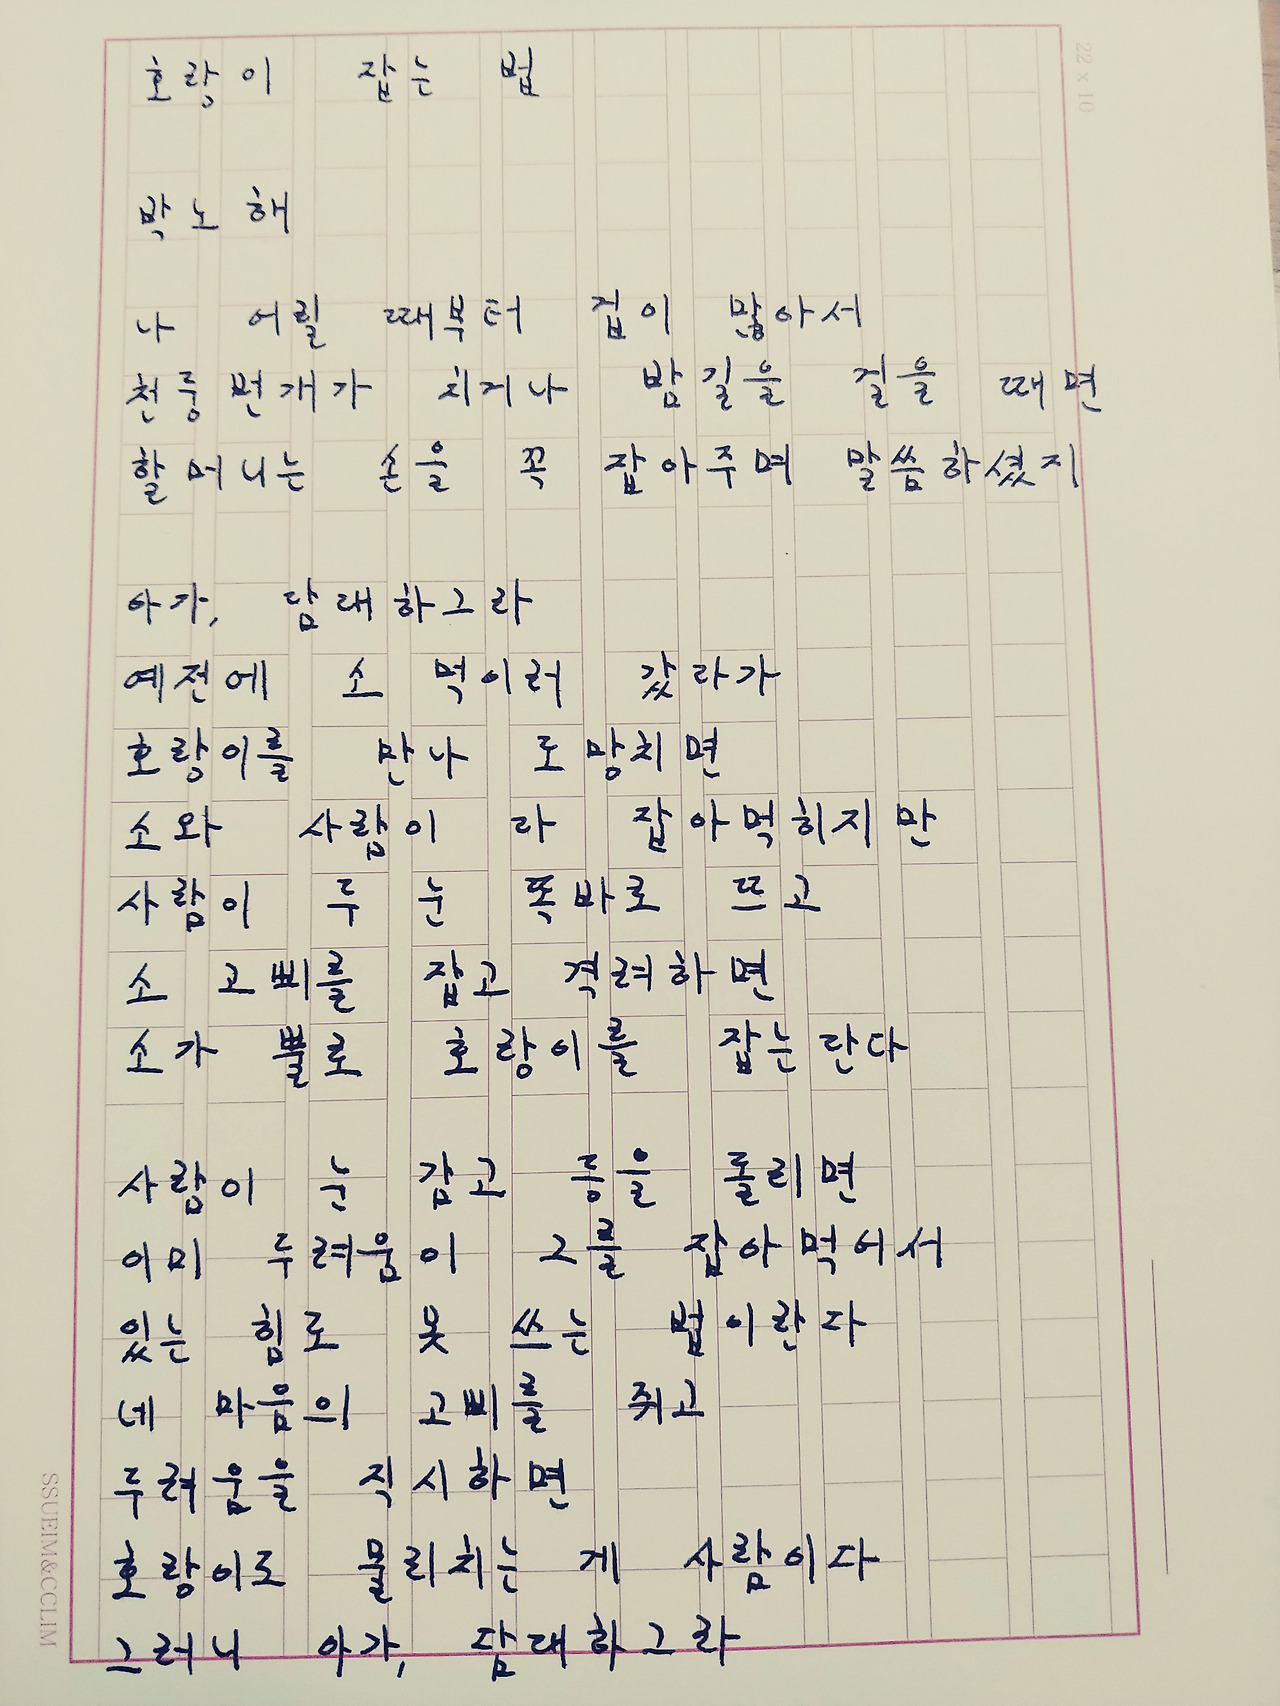 호랑이 잡는 법
박노해
22 x 10
나 어릴 때부터 겁이 많아서
천둥번개가 치거나 밤길을 걸을 때면
할머니는 손을 꼭 잡아주며 말씀하셨지
아가, 담대하그라
예전에 소 먹이러 갔다가
호랑이를 만나 도망치면
소와 사람이 다 잡아먹히지만
사람이 두 눈 똑바로 뜨고
소 고삐를 잡고 격려하면
소가 뿔로 호랑이를 잡는단다
사람이 눈 감고 등을 돌리면
이미 두려움이 그를 잡아먹어서
있는 힘도 못 쓰는 법이란다
네 마음의 고삐를 쥐고
두려움을 직시하면
호랑이도 물리치는 게 사람이다
그러니 아가, 담대하그라
SSUEIM&CCLIM